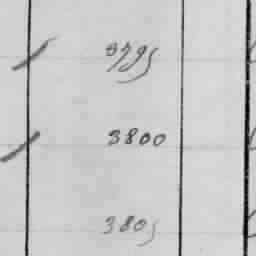 3795
3800
3805